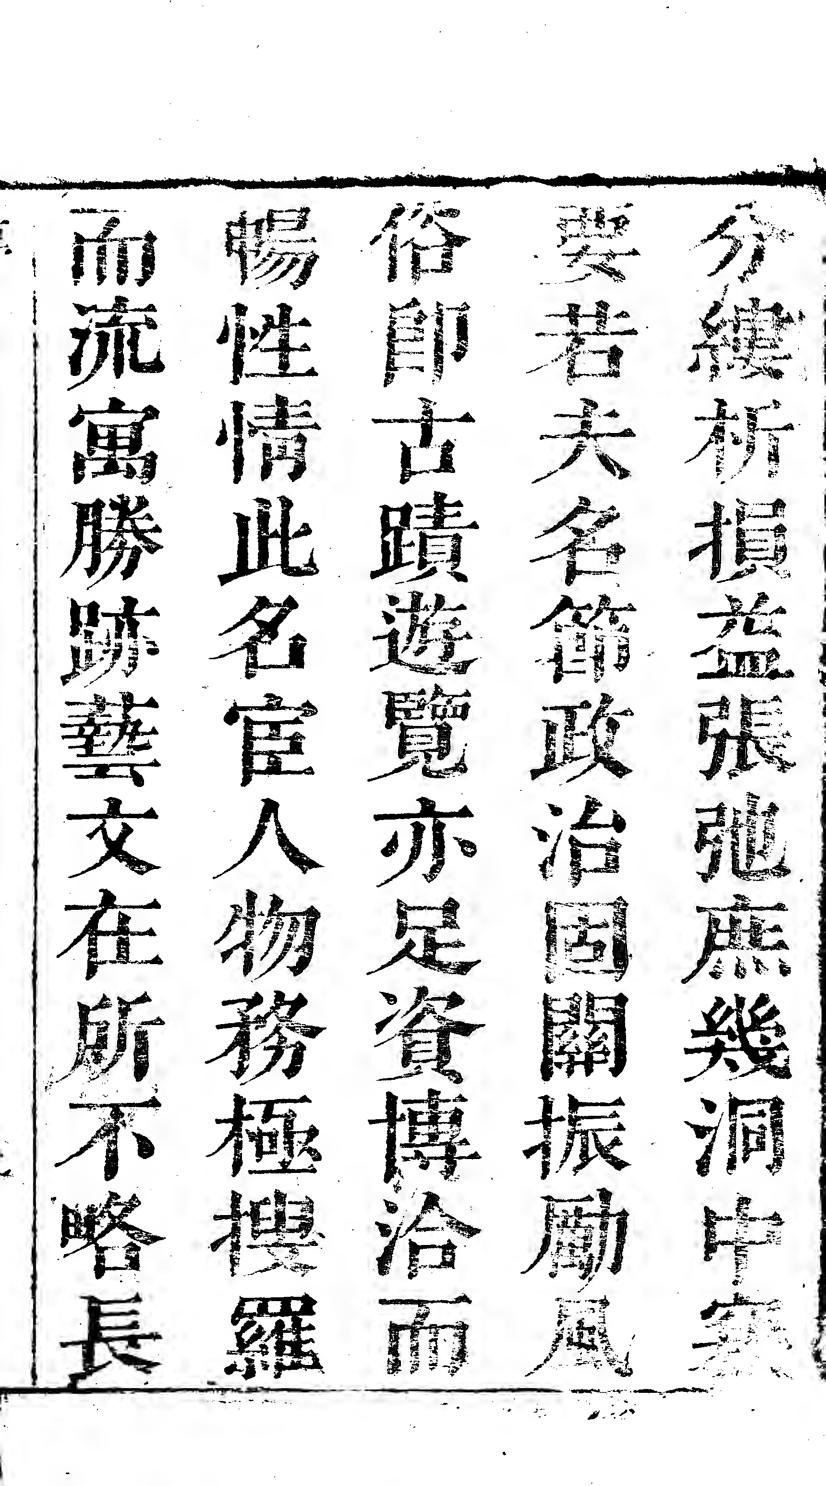 分縷析損益張弛庶幾洞中窾
要若夫名節政治固關振勵風
俗卽古蹟遊覽亦足資博洽而
暢性情此名宦人物務極搜羅
而流寓勝跡藝文在所不略長